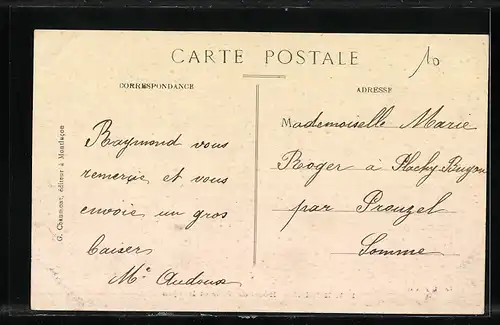 CARTE POSTALE
10
CORRESPONDANCE
ADRESSE
G. Chaumont, éditeur à Montluçon
Raymond vous
remercie et vous
envoie un gros
baiser
Mᵉ Audoux
Mademoiselle Marie
Roger à Flachy Buyon
par Prouzel
Somme